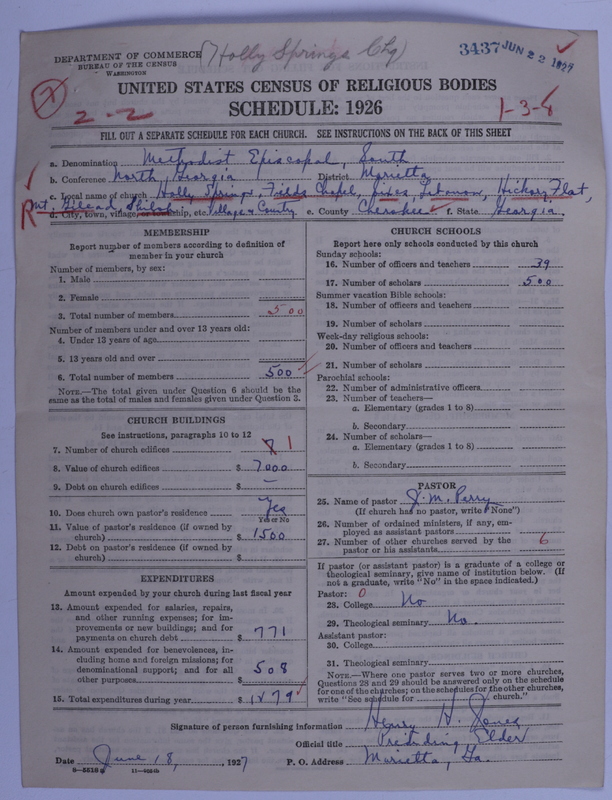 DEPARTMENT OF COMMERCE (Holly Springs Chg) 3437 JUN 22 1927
BUREAU OF THE CENSUS
WASHINGTON
UNITED STATES CENSUS OF RELIGIOUS BODIES
SCHEDULE: 1926
2-2 1-3-8
FILL OUT A SEPARATE SCHEDULE FOR EACH CHURCH. SEE INSTRUCTIONS ON THE BACK OF THIS SHEET
a. Denomination Methodist Episcopal, South
b. Conference North Georgia District Marietta
c. Local name of church Holly Springs, Fields Chapel, Lebanon, Hickory Flat,
R Mt. Gilead, Shiloh
d. City, town, village, or township, etc. Village & Country e. County Cherokee f. State Georgia.
MEMBERSHIP
Report number of members according to definition of
member in your church
Number of members, by sex:
1. Male
2. Female
3. Total number of members 500
Number of members under and over 13 years old:
4. Under 13 years of age
5. 13 years old and over
6. Total number of members 500
NOTE.—The total given under Question 6 should be the
same as the total of males and females given under Question 3.
CHURCH BUILDINGS
See instructions, paragraphs 10 to 12
7. Number of church edifices 7 1
8. Value of church edifices $ 7000
9. Debt on church edifices $ —
10. Does church own pastor's residence Yes
Yes or No
11. Value of pastor's residence (if owned by
church) $ 1500
12. Debt on pastor's residence (if owned by
church) $
EXPENDITURES
Amount expended by your church during last fiscal year
13. Amount expended for salaries, repairs,
and other running expenses; for im-
provements or new buildings; and for
payments on church debt $ 771
14. Amount expended for benevolences, in-
cluding home and foreign missions; for
denominational support; and for all
other purposes $ 508
15. Total expenditures during year $ 1279
CHURCH SCHOOLS
Report here only schools conducted by this church
Sunday schools:
16. Number of officers and teachers 39
17. Number of scholars 500
Summer vacation Bible schools:
18. Number of officers and teachers
19. Number of scholars
Week-day religious schools:
20. Number of officers and teachers
21. Number of scholars
Parochial schools:
22. Number of administrative officers
23. Number of teachers—
a. Elementary (grades 1 to 8)
b. Secondary
24. Number of scholars—
a. Elementary (grades 1 to 8)
b. Secondary
PASTOR
25. Name of pastor J. M. Perry
(If church has no pastor, write "None")
26. Number of ordained ministers, if any, em-
ployed as assistant pastors
27. Number of other churches served by the
pastor or his assistants 6
If pastor (or assistant pastor) is a graduate of a college or
theological seminary, give name of institution below. (If
not a graduate, write "No" in the space indicated.)
Pastor: 0
28. College No
29. Theological seminary No.
Assistant pastor:
30. College
31. Theological seminary
NOTE.—Where one pastor serves two or more churches,
Questions 28 and 29 should be answered only on the schedule
for one of the churches; on the schedules for the other churches,
write "See schedule for church."
Signature of person furnishing information Henry H. Jones
Official title Presiding Elder
Date June 18, 1927 P. O. Address Marietta, Ga.